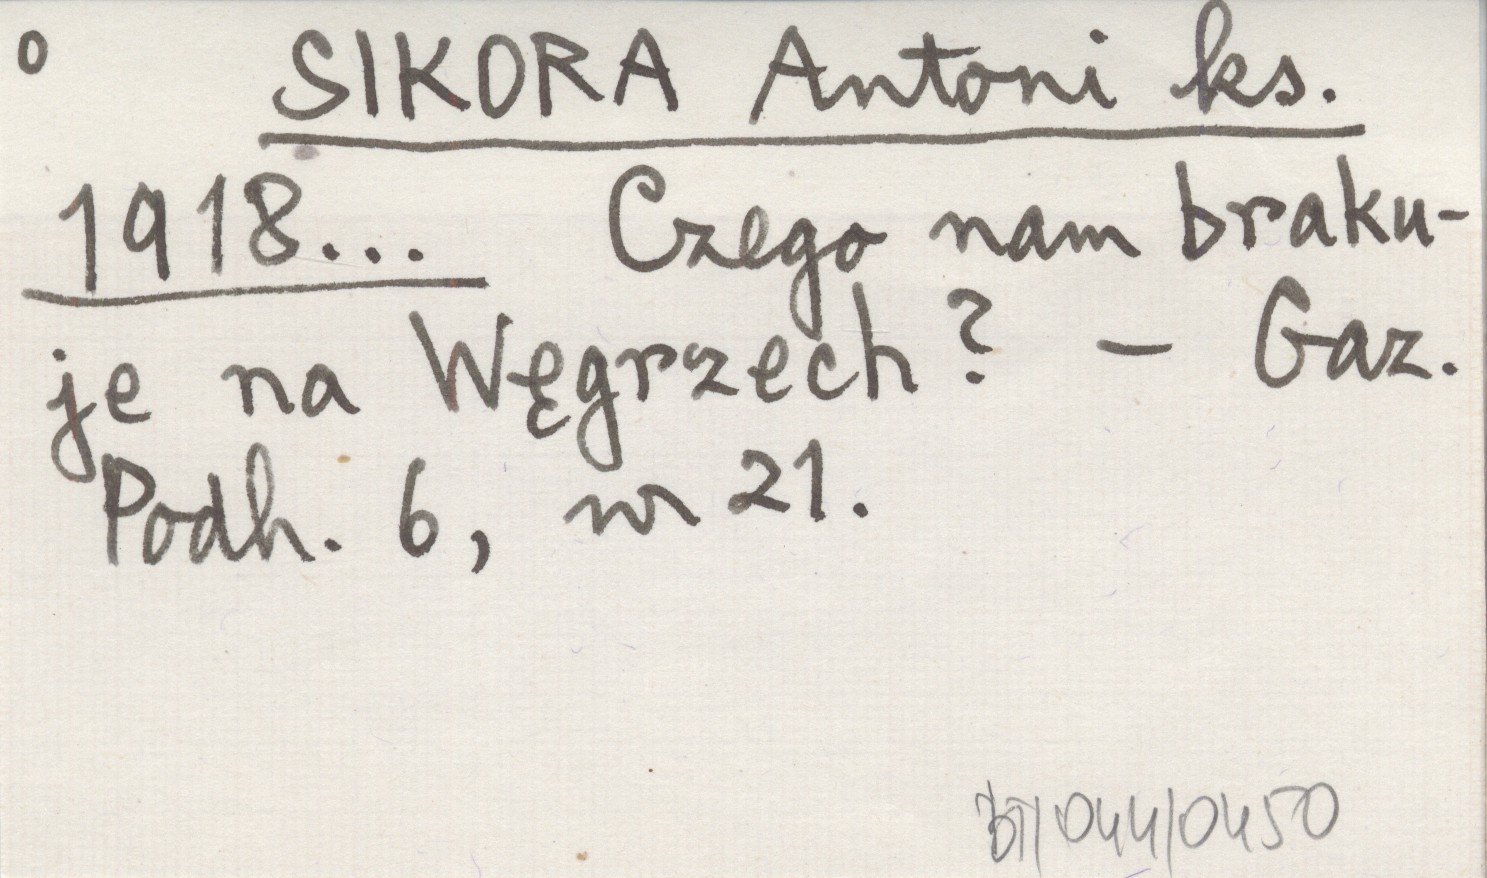 o SIKORA Antoni ks.
1918... Czego nam braku-
je na Węgrzech? – Gaz.
Podh. 6, nr 21.
BT/044/0450